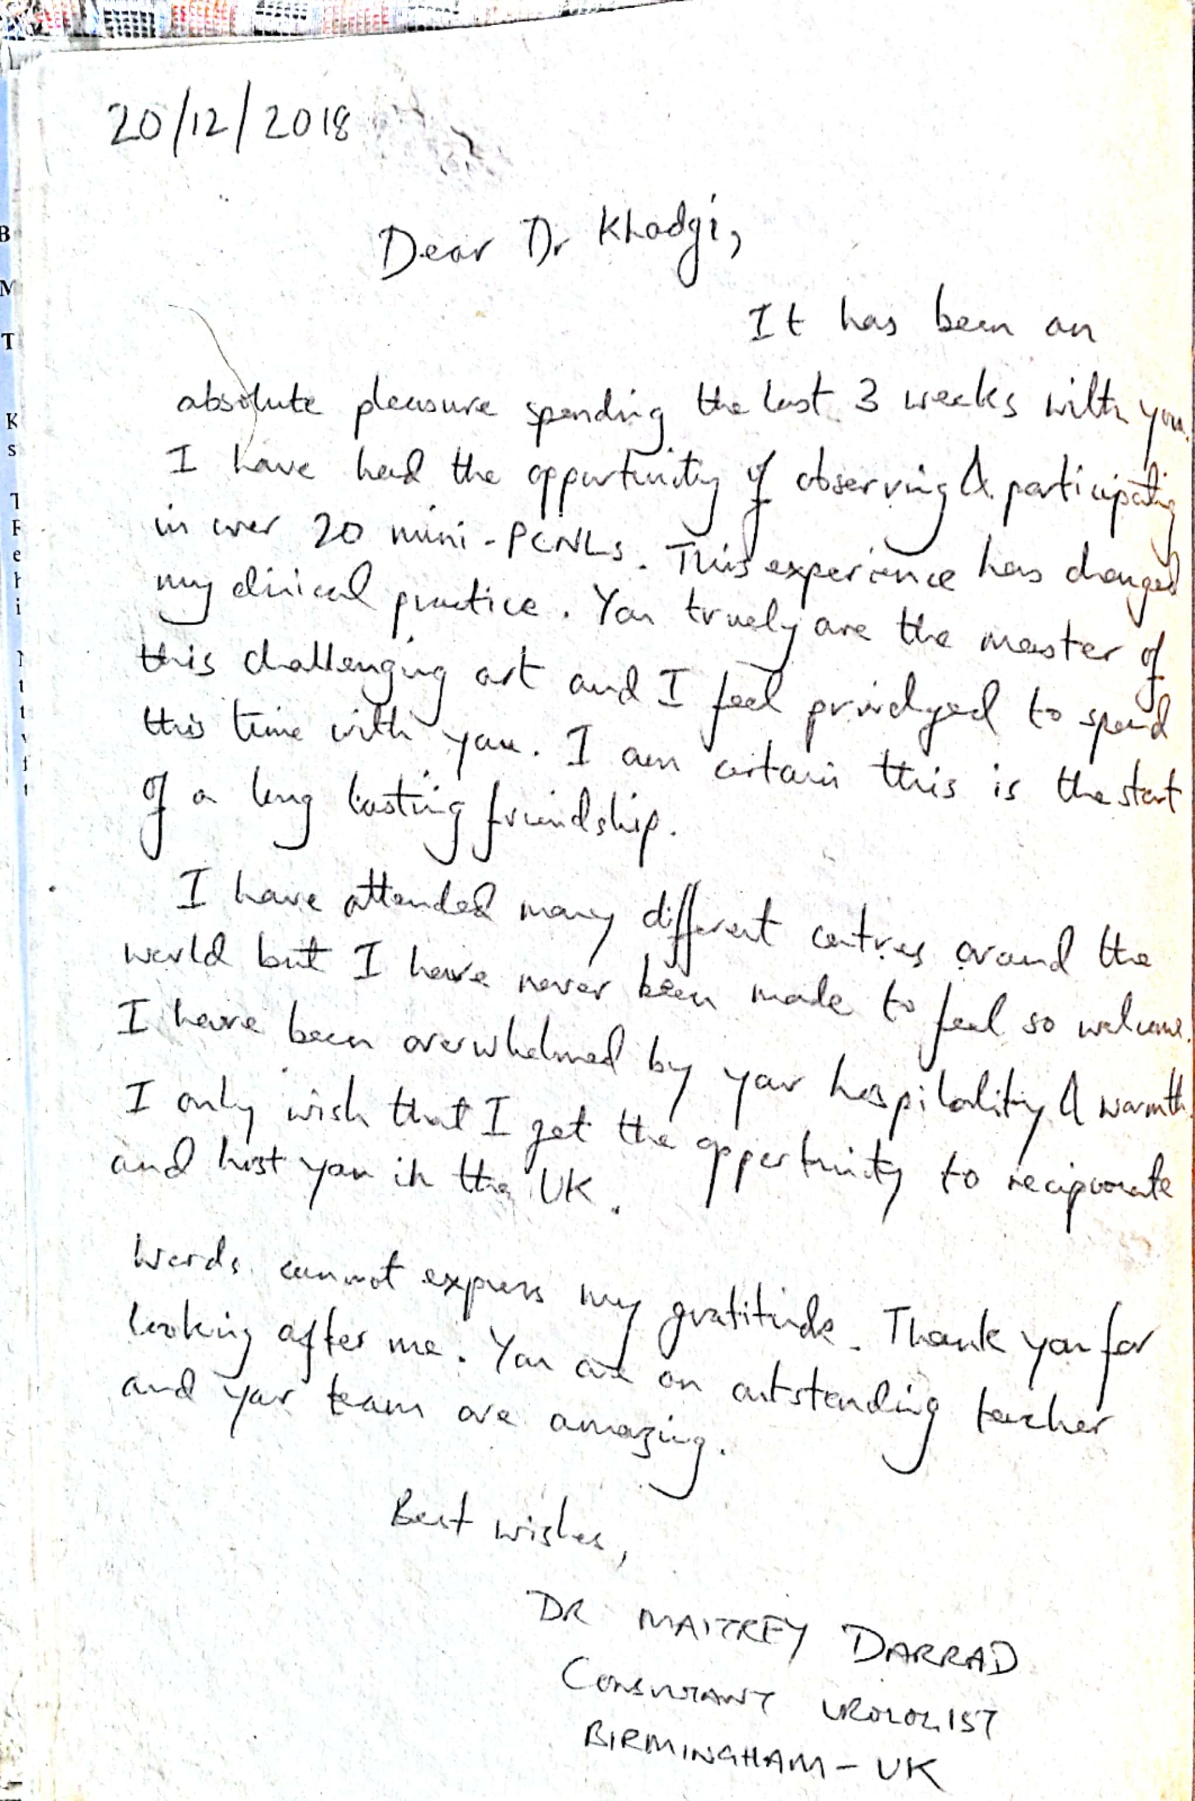 20/12/2018
Dear Dr Khadgi,
It has been an
absolute pleasure spending the last 3 weeks with you.
I have had the opportunity of observing & participating
in over 20 mini-PCNLs. This experience has changed
my clinical practice. You truely are the master of
this challenging art and I feel privelyged to spend
this time with you. I am certain this is the start
of a long lasting friendship.
I have attended many different centres around the
world but I have never been made to feel so welcome.
I have been overwhelmed by your hospitality & warmth.
I only wish that I get the opportunity to reciprocate
and host you in the UK.
Words cannot express my gratitude. Thank you for
looking after me. You are an outstanding teacher
and your team are amazing.
Best wishes,
DR MAITREY DARRAD
CONSULTANT UROLOGIST
BIRMINGHAM - UK
B
M
T
K
s
T
F
e
h
i